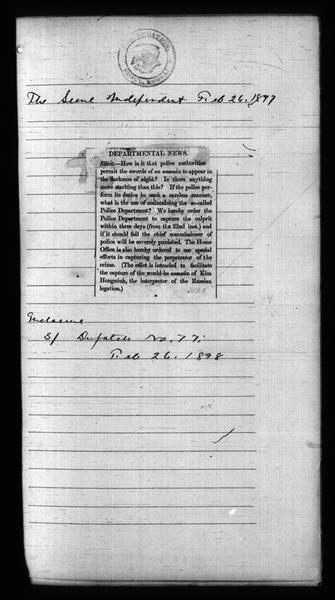 LEGATION
SEOUL, KOREA
The Seoul Independent Feb 26, 1897
DEPARTMENTAL NEWS.
Edict.—How is it that police authorities
permit the swords of an assassin to appear in
the darkness of night? Is there anything
more startling than this? If the police per-
form its duties in such a careless manner,
what is the use of maintaining the so-called
Police Department? We hereby order the
Police Department to capture the culprit
within three days (from the 22nd inst.) and
if it should fail the chief commissioner of
police will be severely punished. The Home
Office is also hereby ordered to use special
efforts in capturing the perpetrator of the
crime. (The edict is intended to facilitate
the capture of the would-be assassin of Kim
Hongniuk, the interpreter of the Russian
legation.)
Enclosure
5/ Dispatch No. 77;
Feb 26. 1898